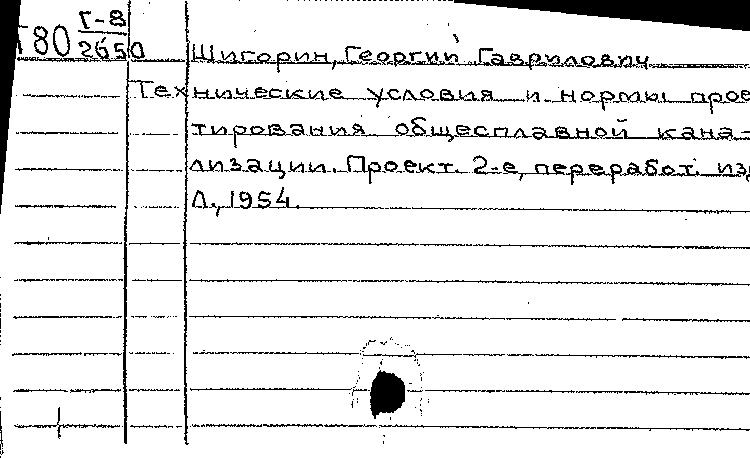 Г-8
Т80 2650
Шигорин, Георгий Гаврилович
Технические условия и нормы прое
тирования общесплавной кана-
лизации. Проект. 2-е, переработ. изд
Л., 1954.